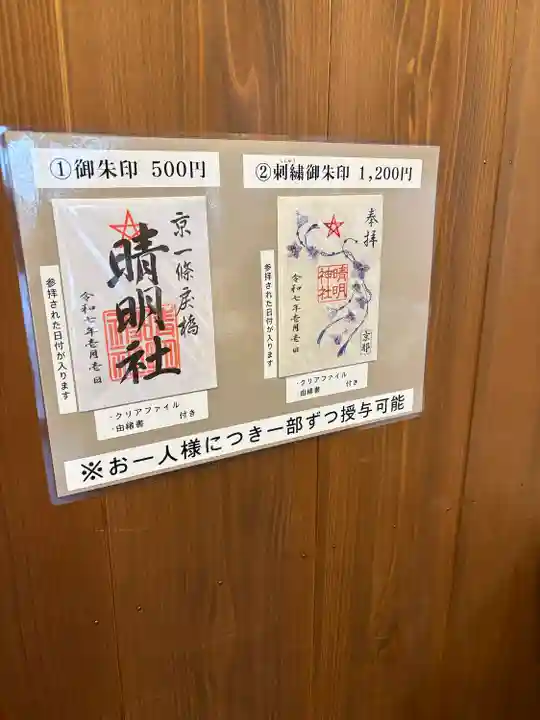 ①御朱印 500円
参拝された日付が入ります
京一條戻橋
晴明社
令和七年壱月壱日
・クリアファイル
・由緒書 付き
②刺繍御朱印 1,200円
ししゅう
参拝された日付が入ります
奉拝
晴明
神社
令和七年壱月壱日
京都
・クリアファイル
・由緒書 付き
※お一人様につき一部ずつ授与可能